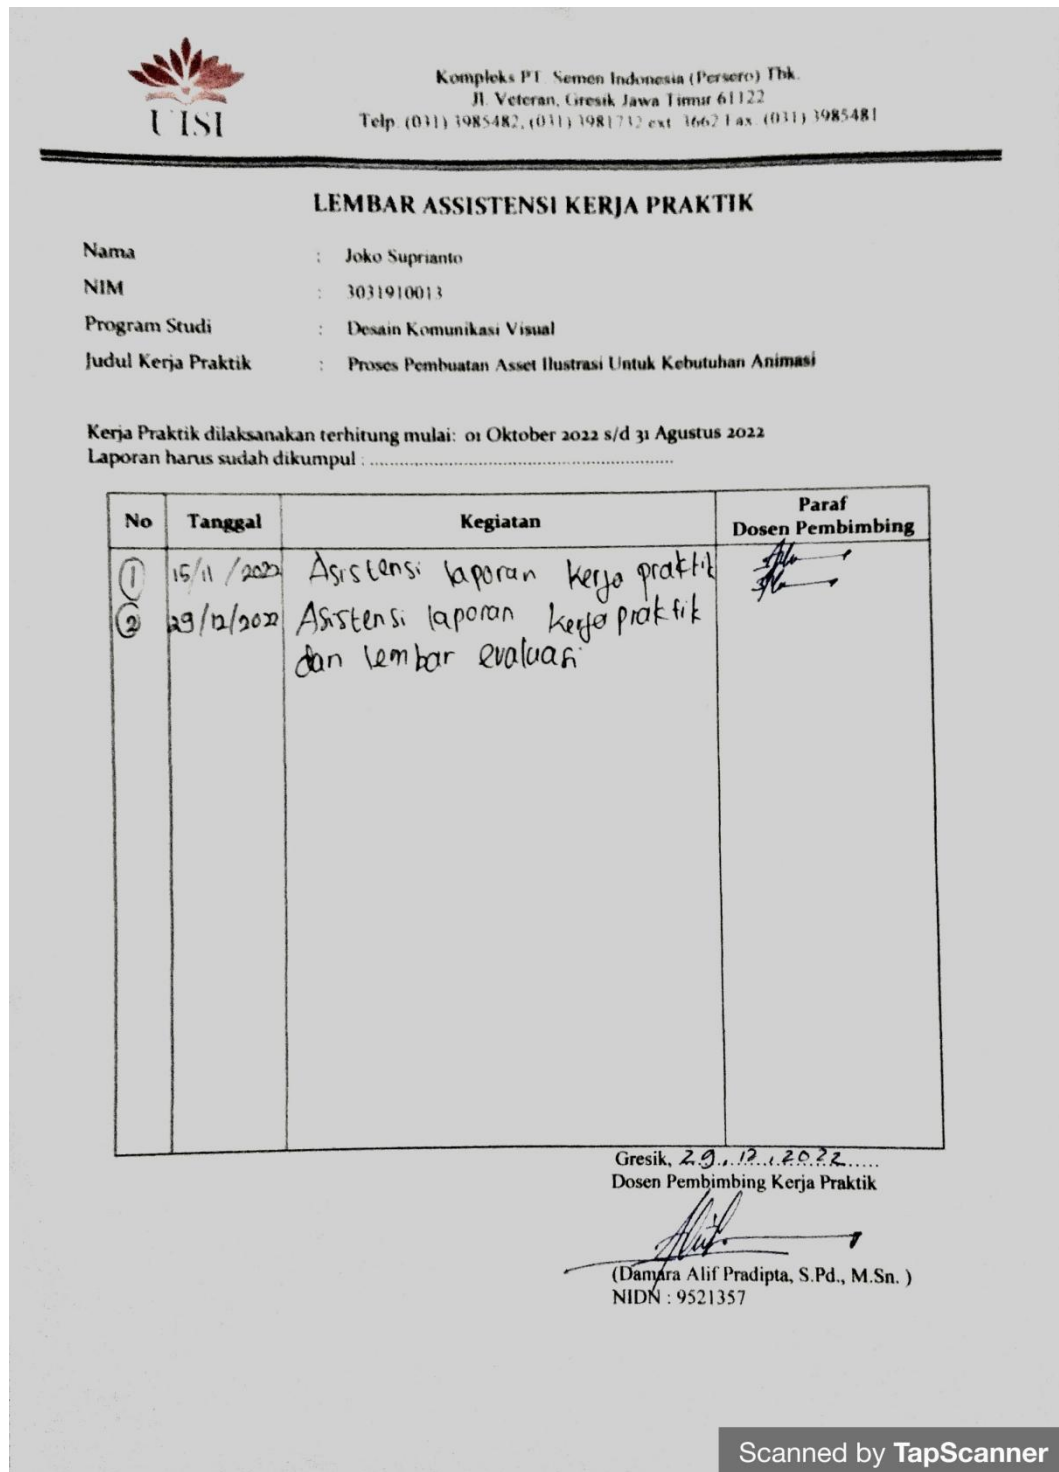 UISI
Kompleks PT. Semen Indonesia (Persero) Tbk.
Jl. Veteran, Gresik Jawa Timur 61122
Telp. (031) 3985482, (031) 3981732 ext. 3662 Fax. (031) 3985481
LEMBAR ASSISTENSI KERJA PRAKTIK
Nama : Joko Suprianto
NIM : 3031910013
Program Studi : Desain Komunikasi Visual
Judul Kerja Praktik : Proses Pembuatan Asset Ilustrasi Untuk Kebutuhan Animasi
Kerja Praktik dilaksanakan terhitung mulai: 01 Oktober 2022 s/d 31 Agustus 2022
Laporan harus sudah dikumpul : ..............................................................
No Tanggal Kegiatan Paraf
Dosen Pembimbing
1 15/11/2022 Asistensi laporan kerja praktik
2 29/12/2022 Asistensi laporan kerja praktik
dan lembar evaluasi
Gresik, 29.,.12.,.2022......
Dosen Pembimbing Kerja Praktik
(Damara Alif Pradipta, S.Pd., M.Sn. )
NIDN : 9521357
Scanned by TapScanner